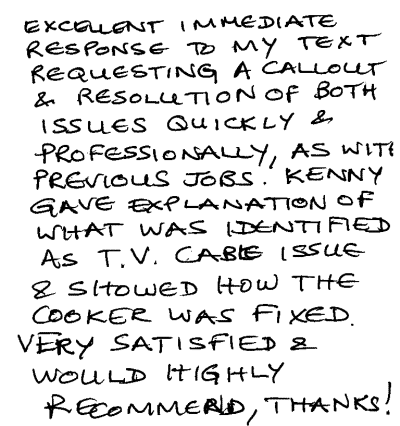 EXCELLENT IMMEDIATE
RESPONSE TO MY TEXT
REQUESTING A CALLOUT
& RESOLUTION OF BOTH
ISSUES QUICKLY &
PROFESSIONALLY, AS WITH
PREVIOUS JOBS. KENNY
GAVE EXPLANATION OF
WHAT WAS IDENTIFIED
AS T.V. CABLE ISSUE
& SHOWED HOW THE
COOKER WAS FIXED.
VERY SATISFIED &
WOULD HIGHLY
RECOMMEND, THANKS!